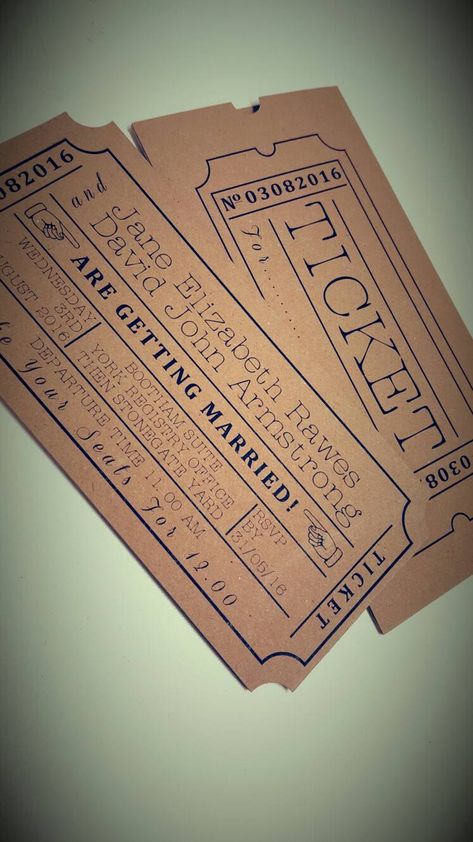 03082016
Jane Elizabeth Rawes
and
David John Armstrong
ARE GETTING MARRIED!
WEDNESDAY
3RD
AUGUST 2016
BOOTHAM SUITE
YORK REGISTRY OFFICE
THEN STONEGATE YARD
RSVP
BY
31/05/16
DEPARTURE TIME 11.00 AM
Your Seats For 12.00
TICKET
Nº 03082016
For
TICKET
0308